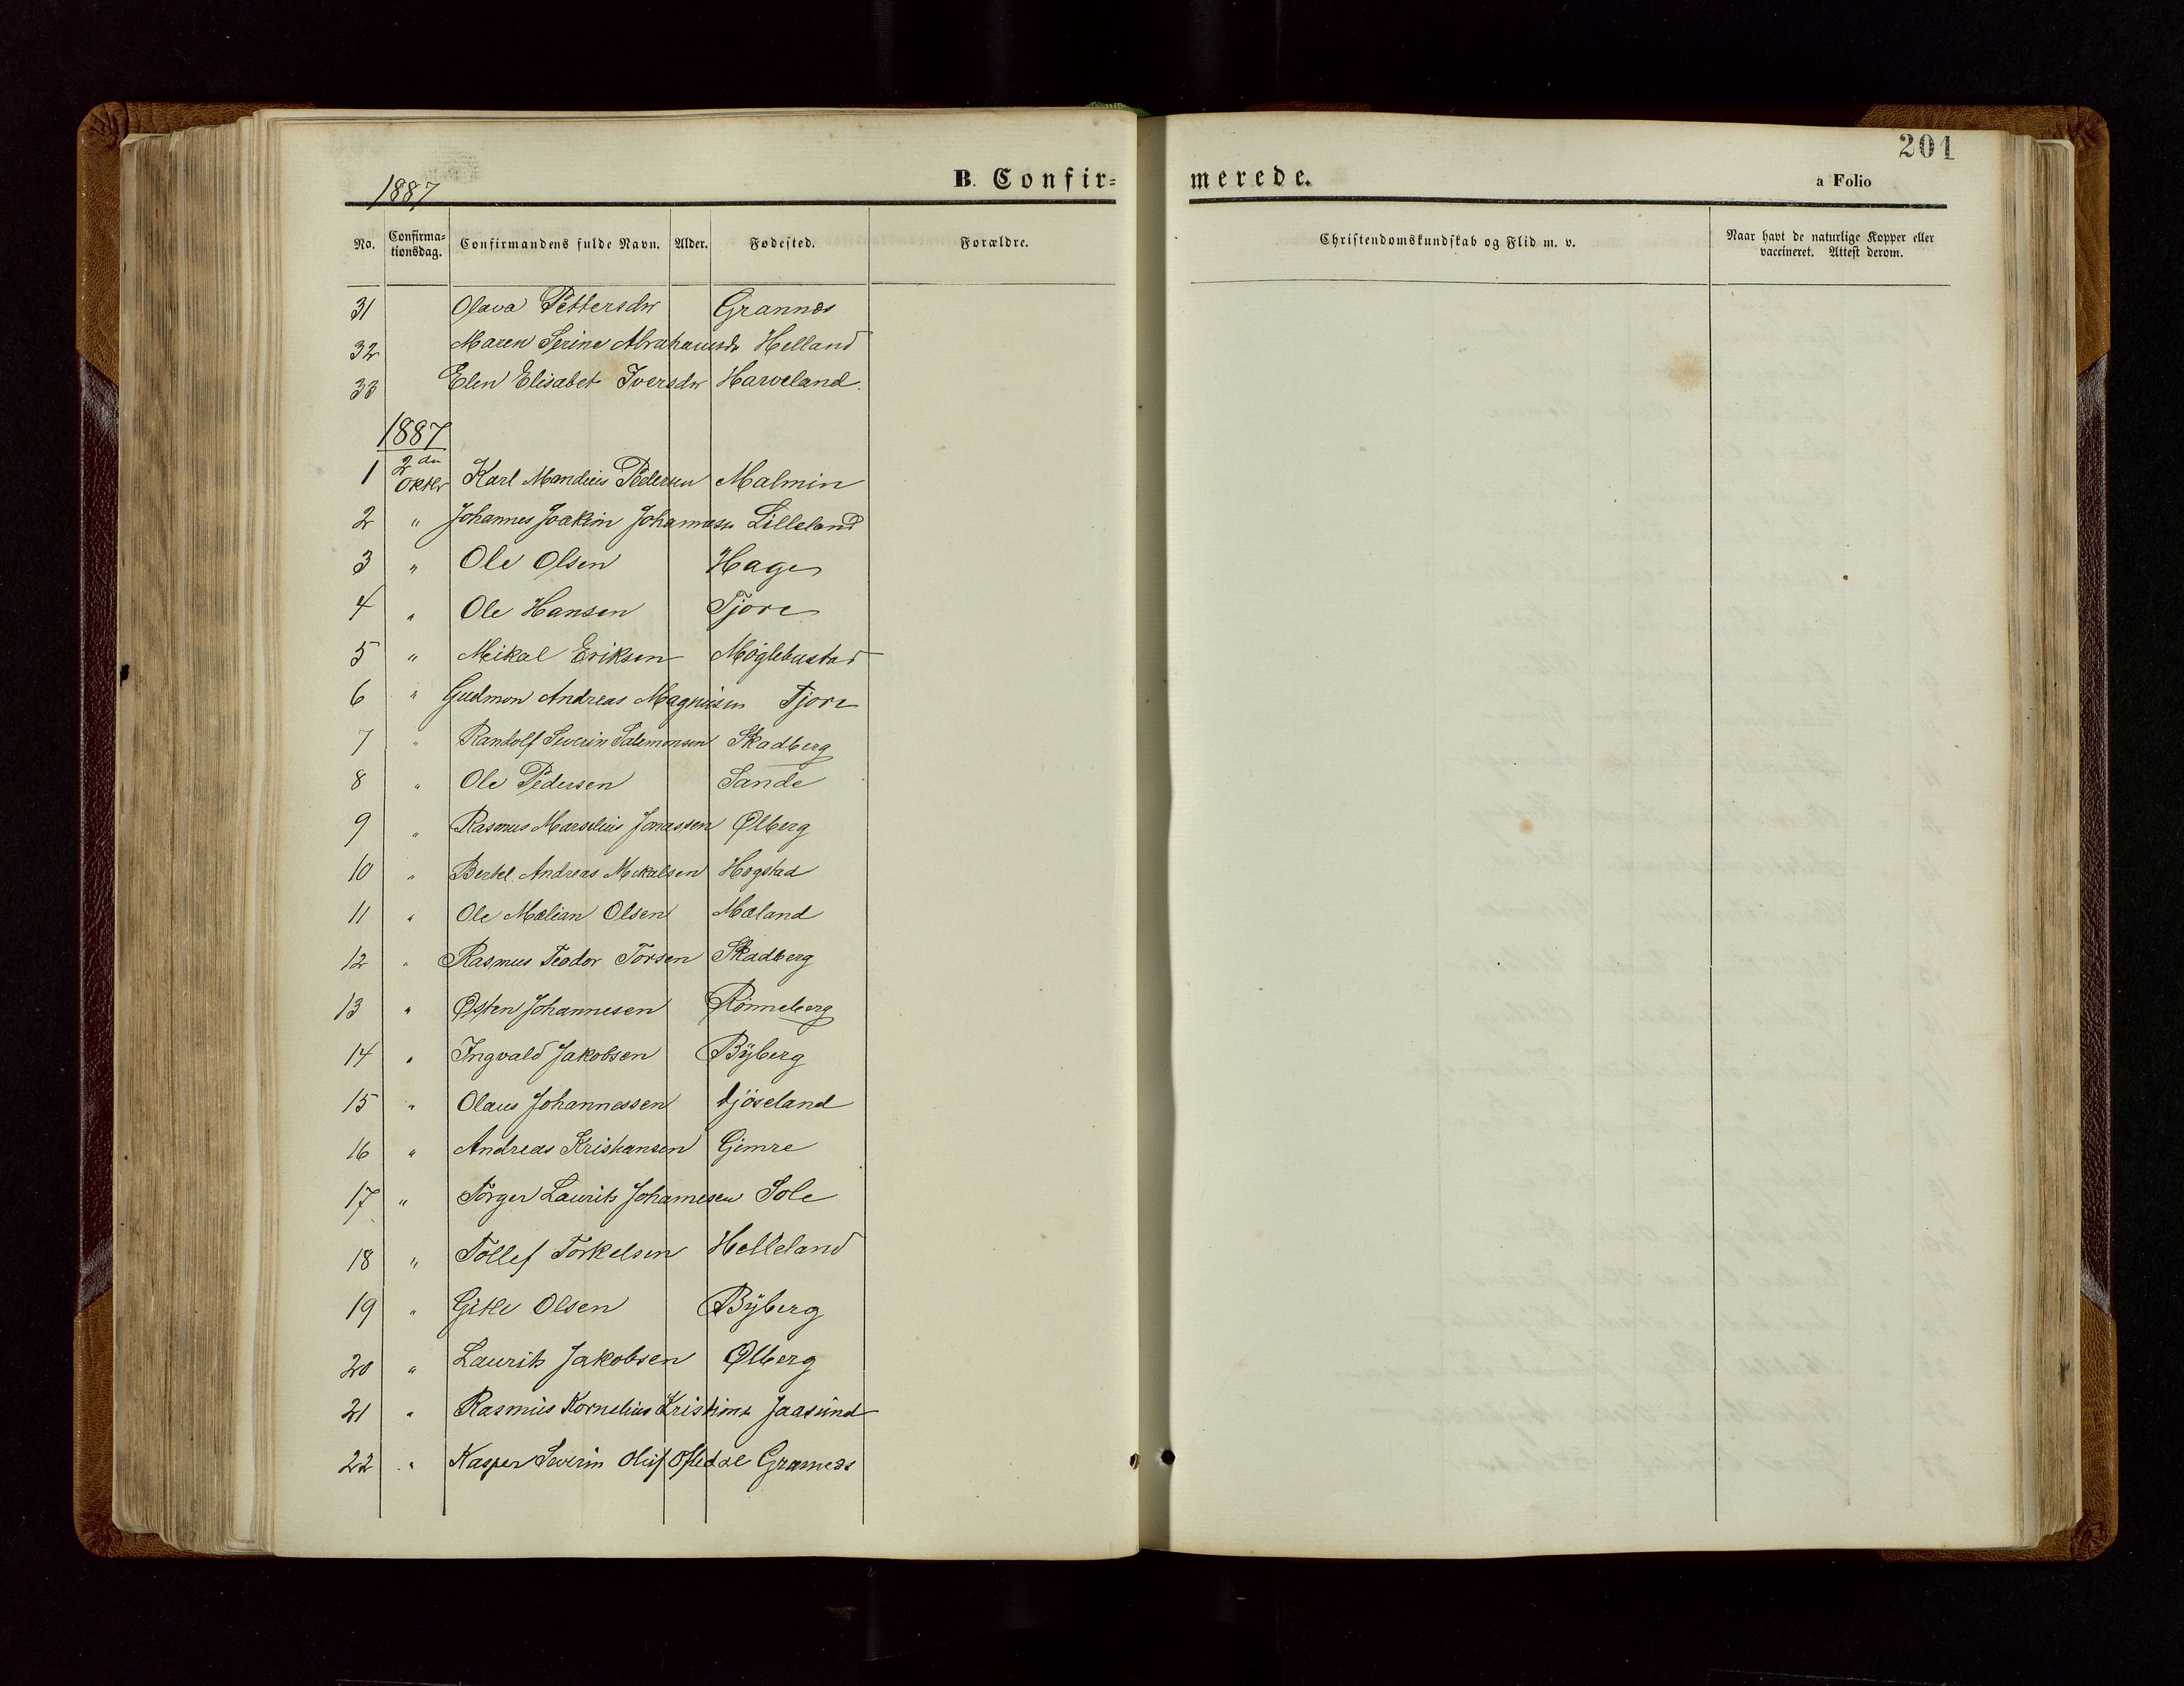 201
1887
B. Confir=
merede.
a Folio
No. Confirma=tionsdag. Confirmandens fulde Navn. Alder. Fødested. Forældre. Christendomskundskab og Flid m. v. Naar havt de naturlige Kopper eller vaccineret. Attest derom.
31 Olava Pettersdr Grannes
32 Maren Serine Abrahamsdr Helland
33 Elen Elisabet Iversdr Harveland.
1887
1 2den Oktbr Karl Mandius Pedersen Malmin
2 " Johannes Joakim Johannesn Lilleland
3 " Ole Olsen Hage
4 " Ole Hansen Tjore
5 " Meikal Eriksen Møglebustad
6 " Gudmon Andreas Magnusen Tjore
7 " Randolf Severin Salemonsen Skadberg
8 " Ole Pedersen Sande
9 " Rasmus Marselius Jonassen Ølberg
10 " Bertel Andreas Mekalsen Hogstad
11 " Ole Malian Olsen Meland
12 " Rasmus Teodor Torsen Skadberg
13 " Østen Johannesen Rønneberg
14 " Ingvald Jakobsen Byberg
15 " Olaus Johannessen Gjøseland
16 " Andreas Kristiansen Gimre
17 " Torger Laurits Johannesen Sole
18 " Tollef Torkelsen Helleland
19 " Gitle Olsen Byberg
20 " Laurits Jakobsen Ølberg
21 " Rasmus Kornelius Kristians Jaasund
22 " Kasper Severin Oluf Oftedal Grannes